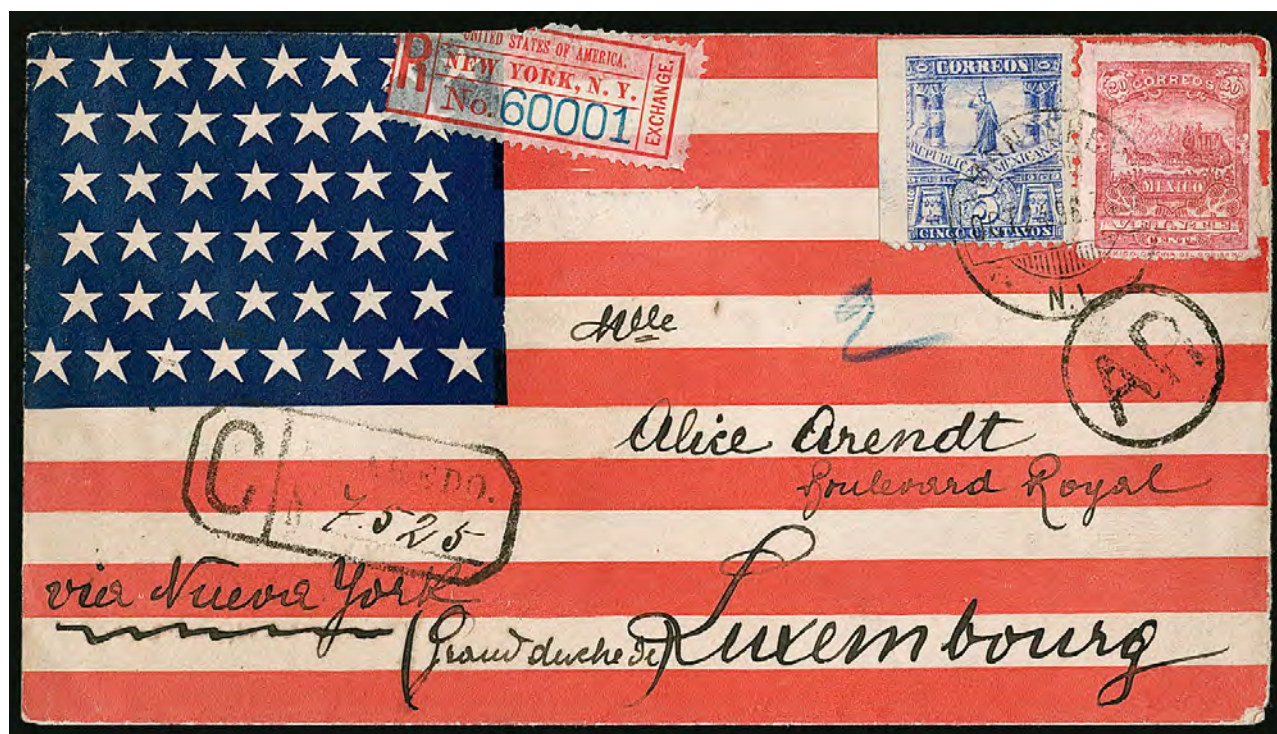 R
UNITED STATES OF AMERICA.
NEW YORK, N. Y.
No. 60001
EXCHANGE.
CORREOS
MEXICANA
5
CINCO CENTAVOS
20 CORREOS 20
MEXICO
VEINTE
CENTS
N.L.
AR
2
Mlle
Alice Arendt
Boulevard Royal
C
7.525
via Nueva York
(Grand duche de) Luxembourg